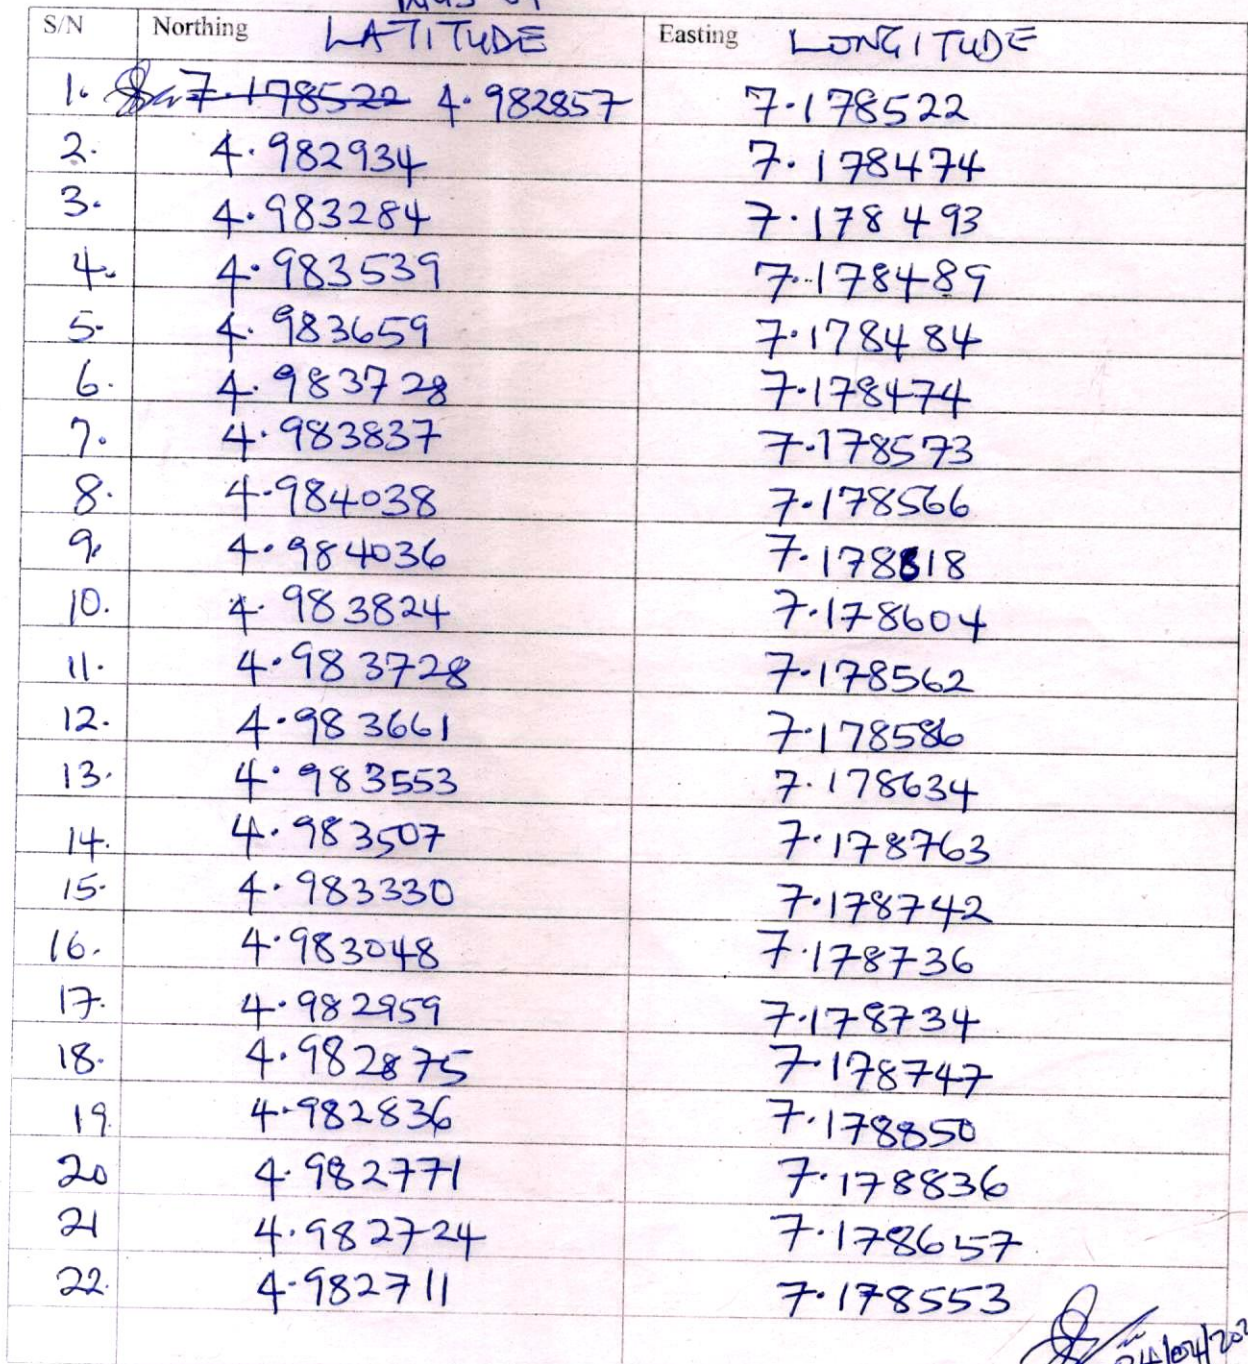 S/N Northing LATITUDE Easting LONGITUDE
1. 7.178522 4.982857 7.178522
2. 4.982934 7.178474
3. 4.983284 7.178493
4. 4.983539 7.178489
5. 4.983659 7.178484
6. 4.983728 7.178474
7. 4.983837 7.178573
8. 4.984038 7.178566
9. 4.984036 7.178818
10. 4.983824 7.178604
11. 4.983728 7.178562
12. 4.983661 7.178586
13. 4.983553 7.178634
14. 4.983507 7.178763
15. 4.983330 7.178742
16. 4.983048 7.178736
17. 4.982959 7.178734
18. 4.982875 7.178747
19. 4.982836 7.178850
20 4.982771 7.178836
21 4.982724 7.178657
22. 4.982711 7.178553